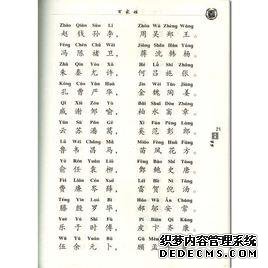 百家姓
Zhào Qián Sūn Lǐ Zhōu Wú Zhèng Wáng
赵钱孙李，周吴郑王。
Féng Chén Chǔ Wèi Jiǎng Shěn Hán Yáng
冯陈褚卫，蒋沈韩杨。
Zhū Qín Yóu Xǔ Hé Lǚ Shī Zhāng
朱秦尤许，何吕施张。
Kǒng Cáo Yán Huà Jīn Wèi Táo Jiāng
孔曹严华，金魏陶姜。
Qī Xiè Zōu Yù Bǎi Shuǐ Dòu Zhāng
戚谢邹喻，柏水窦章。
Yún Sū Pān Gě Xī Fàn Péng Láng
云苏潘葛，奚范彭郎。
Lǔ Wéi Chāng Mǎ Miáo Fèng Huā Fāng
鲁韦昌马，苗凤花方。
Yú Rén Yuán Liǔ Fēng Bào Shǐ Táng
俞任袁柳，酆鲍史唐。
Fèi Lián Cén Xuē Léi Hè Ní Tāng
费廉岑薛，雷贺倪汤。
Téng Yīn Luó Bì Hǎo Wū Ān Cháng
滕殷罗毕，郝邬安常。
Yuè Yú Shí Fù Pí Biàn Qí Kāng
乐于时傅，皮卞齐康。
Wǔ Yú Yuán Bǔ
伍余元卜，顾孟
织梦内容管理系统
DEDECMS.COM